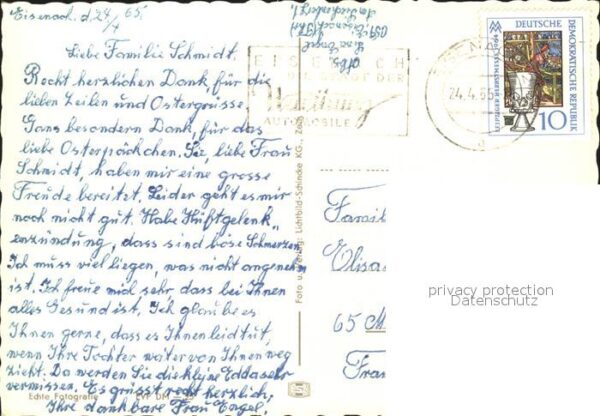 Eisenach, d. 24/4 65.
Liebe Familie Schmidt.
Recht herzlichen Dank, für die
lieben Zeilen und Ostergrüsse,
Gans besondern Dank, für das
liebe Osterpäckchen. Sie, liebe Frau
Schmidt, haben mir eine grosse
Freude bereitet. Leider geht es mir
noch nicht gut. Habe Hüftgelenk„
enzündung, dass sind böse Schmerzen,
Ich muss viel liegen, was nicht angenehm
ist. Ich freue mich sehr dass bei Ihnen
alles Gesund ist. Ich glaube es
Ihnen gerne, dass es Ihnen leid tut,
wenn Ihre Tochter weiter von Ihnen weg
zieht. Da werden Sie die kleine Edda sehr
vermissen. Es grüsst recht herzlich,
Ihre dankbare Frau Engel.
Echte Fotografie EVP DM
Foto u. Verlag: Lichtbild-Schincke KG., Zeitz
Abs.
Engel
Eisenach
EISENACH
STADT DER
Wartburg
AUTOMOBILE
24.4.65
LEIPZIGER HERBSTMESSE 1964
DEUTSCHE
DEMOKRATISCHE REPUBLIK
10
Famil
Elisa
65
Fran
privacy protection
Datenschutz